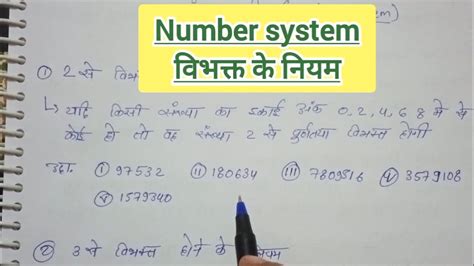 Number system
विभक्त के नियम
① 2 से
↳ यदि किसी संख्या का इकाई अंक 0, 2, 4, 6, 8 में से
कोई हो तो वह संख्या 2 से पूर्णतया विभक्त होगी
उदा. ① 97532 ⑪ 180634 ⑪ⅰ 7809516 3579108
1579340
② 3 से विभक्त होने के नियम